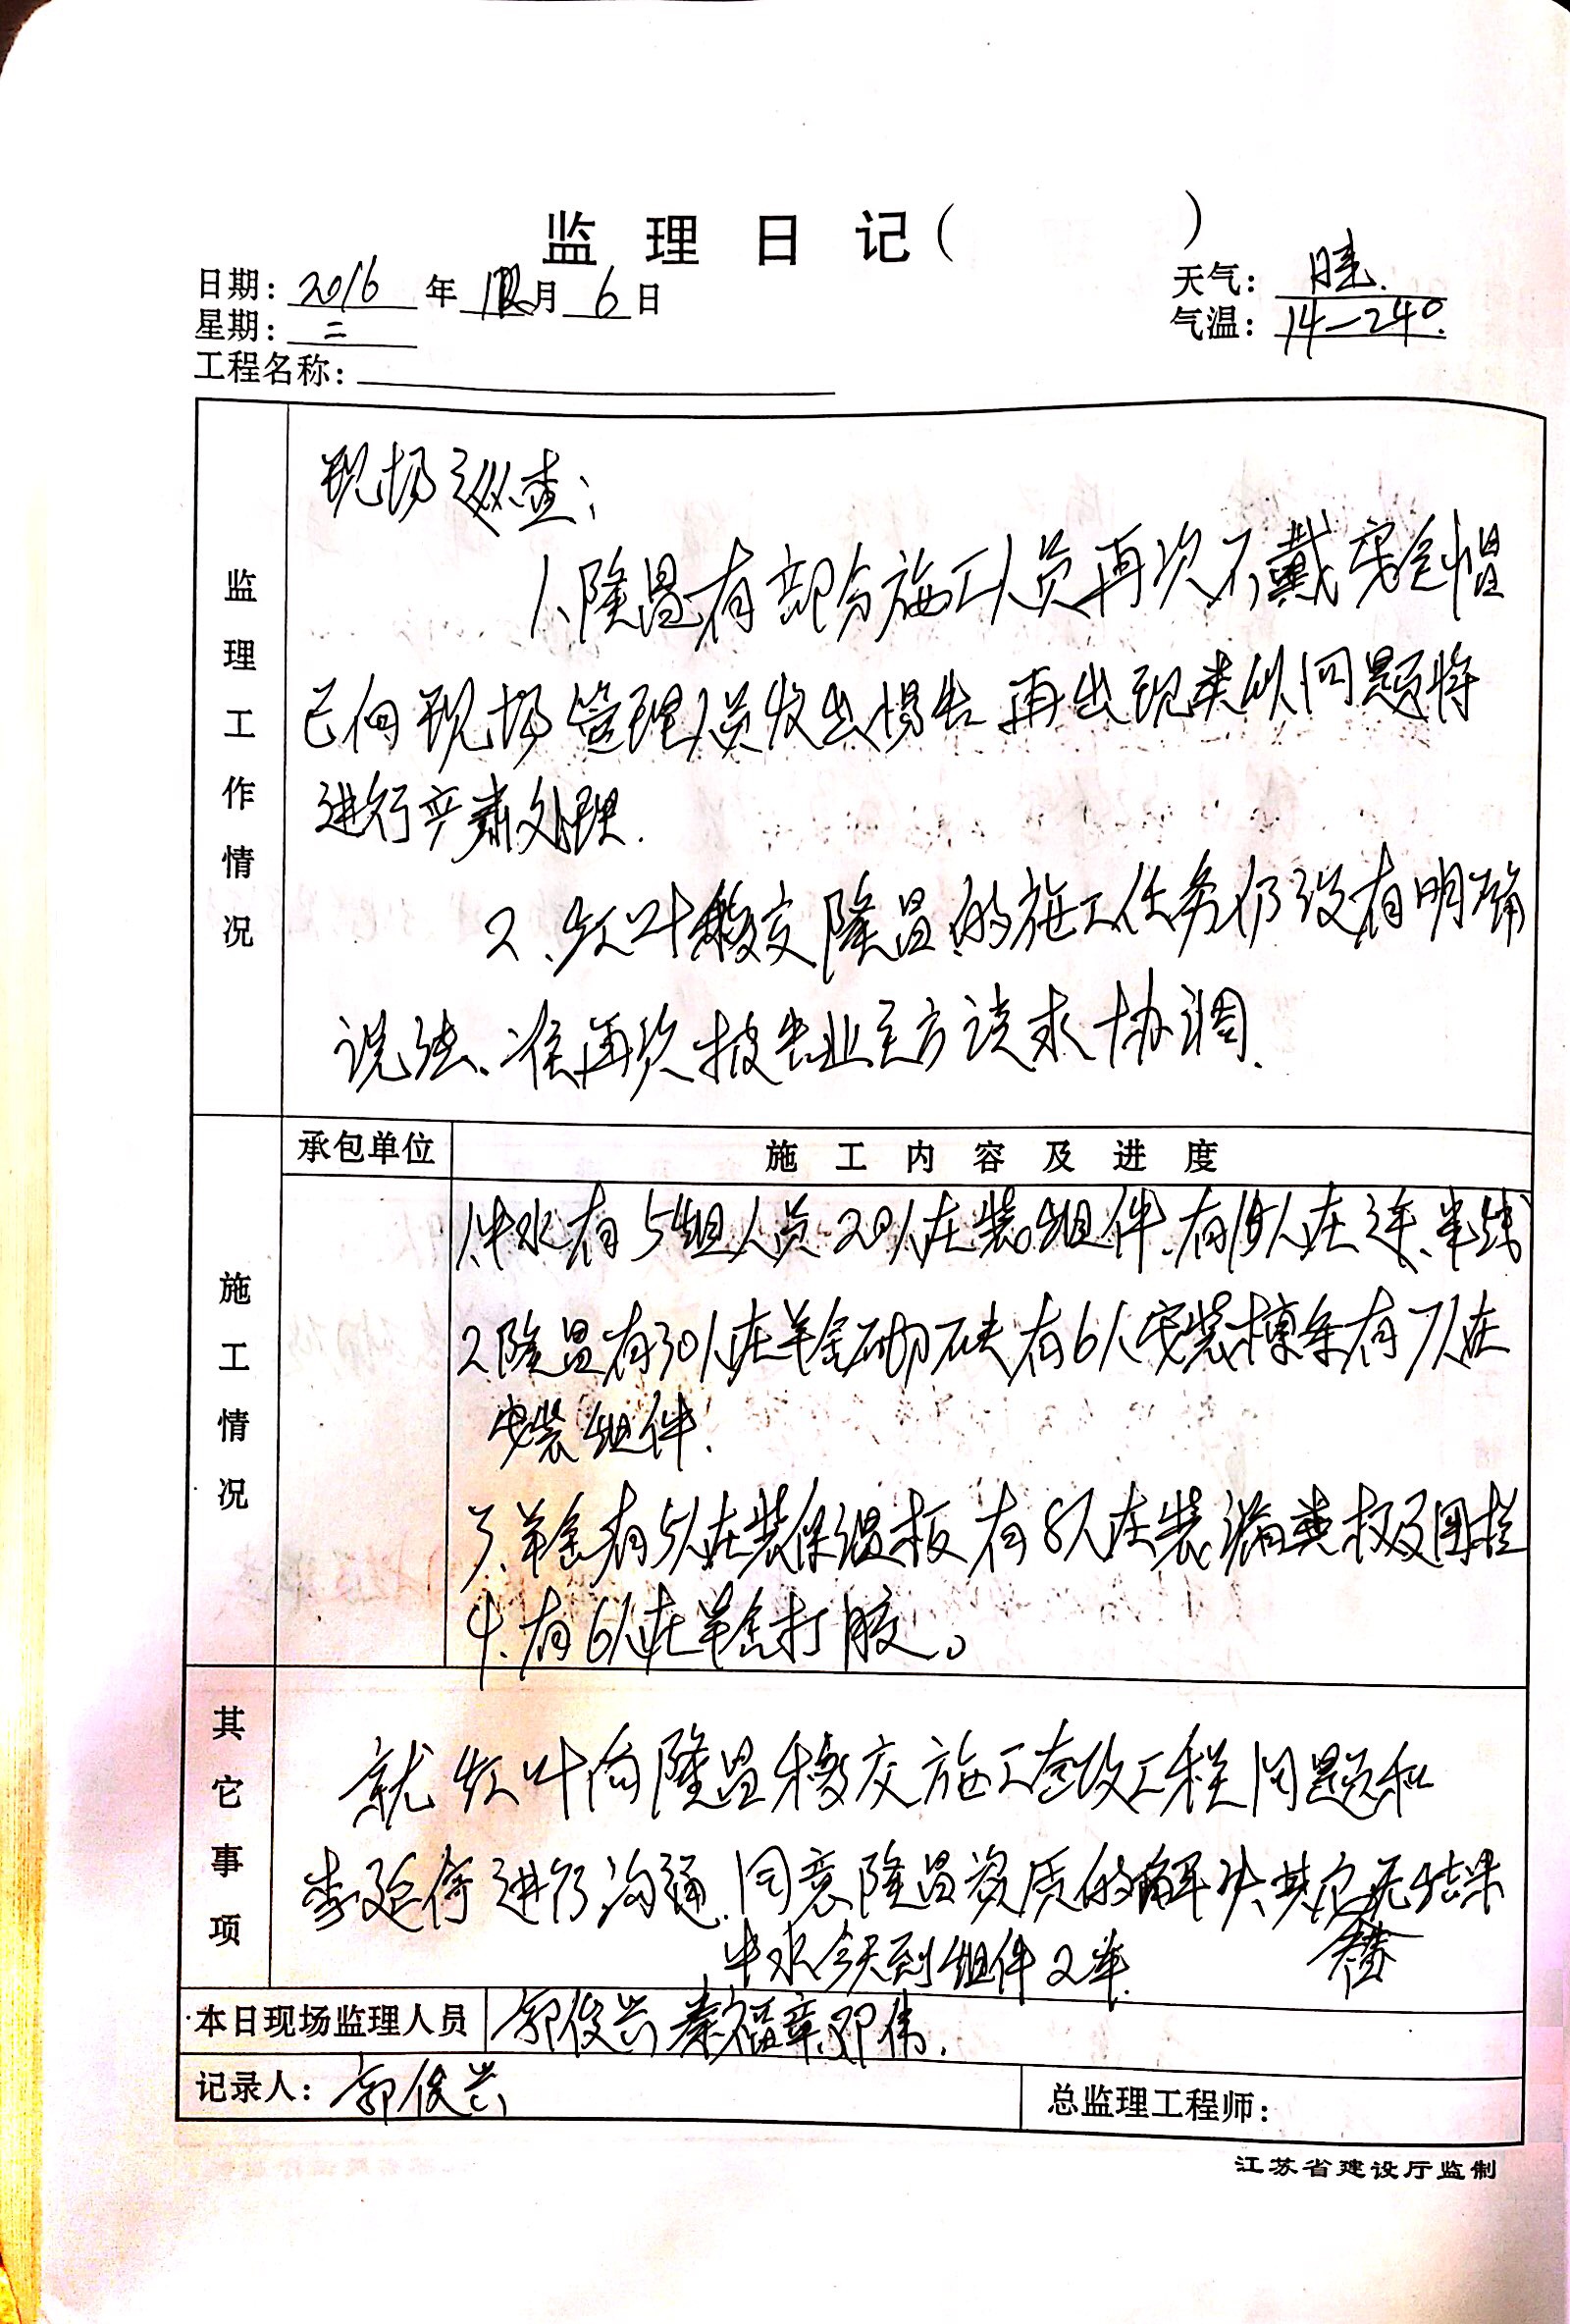 监理日记(　　)
日期: 2016 年 12 月 6 日
天气: 晴.
星期: 二
气温: 14—24°.
工程名称:
监理工作情况
现场巡查:
1、隆昌有部分施工人员再次不戴安全帽
已向现场管理人员发出惕告 再出现类似问题将
进行严肃处理.
2、红叶移交隆昌的施工任务仍没有明确
说法、准再次报告业主方谈求协调.
施工情况
承包单位
施工内容及进度
1.中水有5组人员20人在装组件.有15人在连.半线
2.隆昌有30人在羊舍砌砖 有6人安装檩条 有7人在
安装组件.
3、羊舍有5人在装保温板 有8人在装漏粪板及围栏
4、有6人在羊舍打胶。
其它事项
就红叶向隆昌移交施工 工程问题和
李延 进行沟通.同意隆昌资质的解决其它无结果
中水今天到组件2车.
本日现场监理人员
郭俊兴 秦福章 邓伟.
记录人: 郭俊兴
总监理工程师:
江苏省建设厅监制